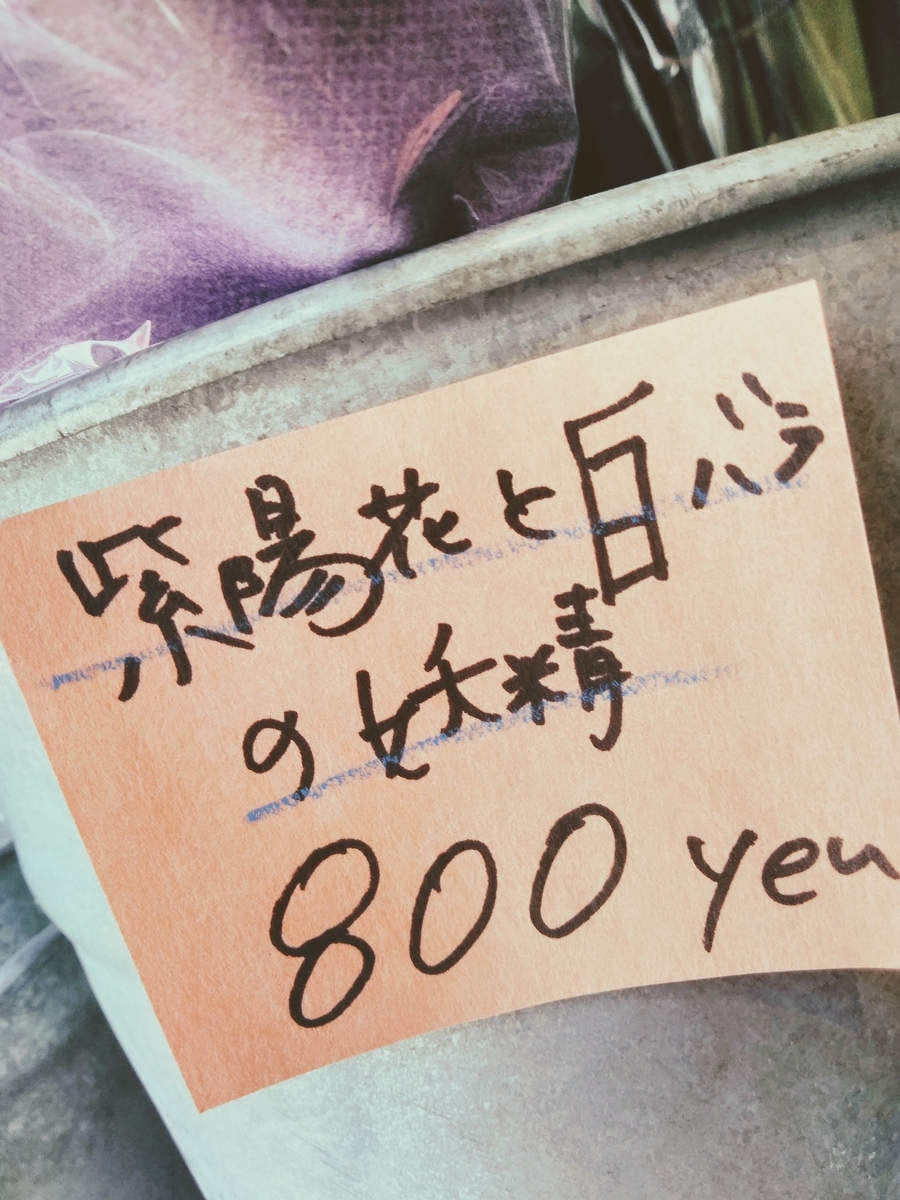 紫陽花と白バラ
の妖精
800 yen